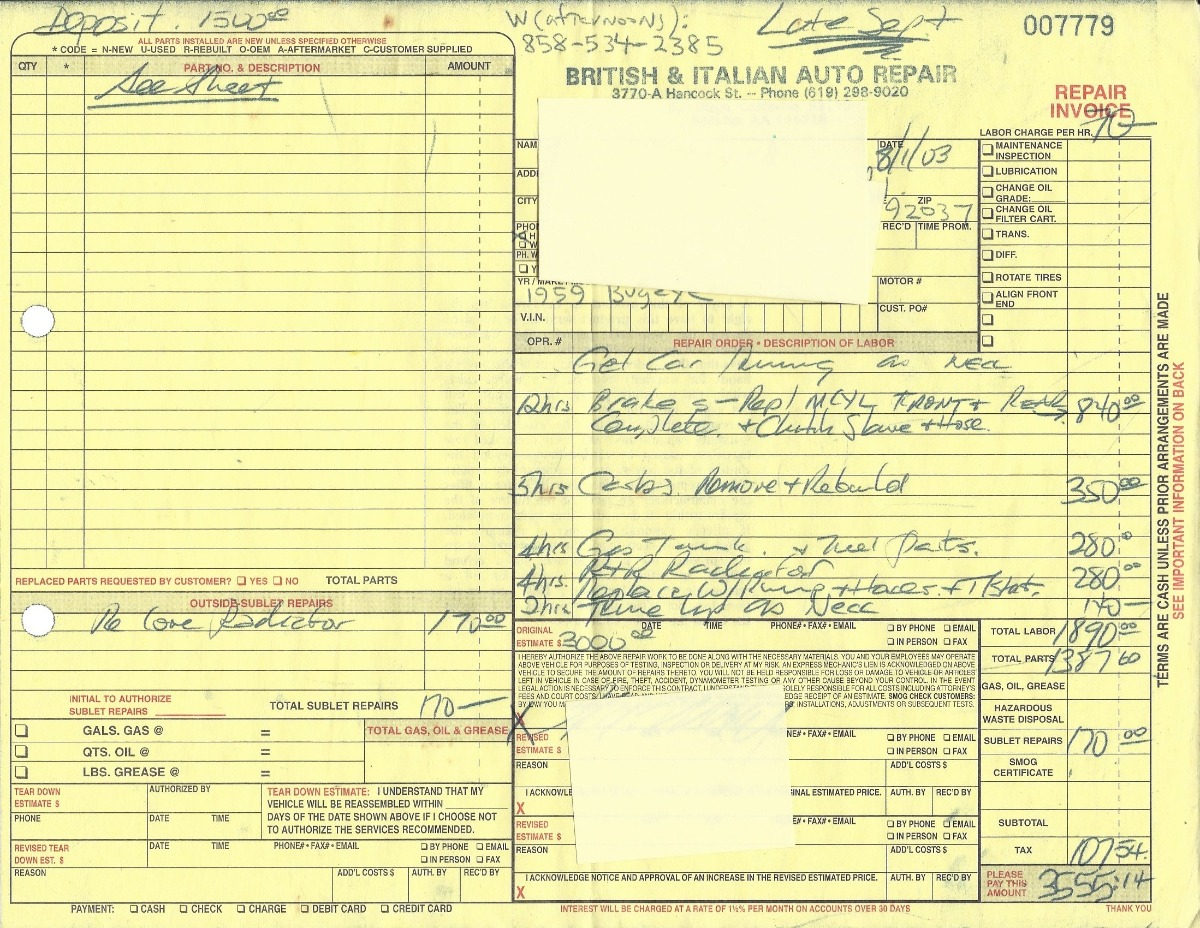 Deposit. 1500.00
W (AFTERNOONS):
858-534-2385
Late Sept
007779
ALL PARTS INSTALLED ARE NEW UNLESS SPECIFIED OTHERWISE
* CODE = N-NEW U-USED R-REBUILT O-OEM A-AFTERMARKET C-CUSTOMER SUPPLIED
QTY * PART NO. & DESCRIPTION AMOUNT
See Sheet
BRITISH & ITALIAN AUTO REPAIR
3770-A Hancock St. -- Phone (619) 298-9020
REPAIR
INVOICE
LABOR CHARGE PER HR. 70-
NAM
DATE
8/1/03
ADD
CITY
ZIP
92037
PHO
H
W
REC'D TIME PROM.
PH. W
Y
YR / MAKE
1959 Bugeye
MOTOR #
V.I.N.
CUST. PO#
MAINTENANCE
INSPECTION
LUBRICATION
CHANGE OIL
GRADE:
CHANGE OIL
FILTER CART.
TRANS.
DIFF.
ROTATE TIRES
ALIGN FRONT
END
OPR. # REPAIR ORDER • DESCRIPTION OF LABOR
Get Car Running as Nec
12hrs Brakes - Repl MCYL FRONT + Rear 840.00
Complete + Clutch Slave + Hose.
5hrs Carbs Remove + Rebuild 350.00
4hrs Gas Tank. + Fuel Parts. 280.00
4hrs R+R Radiator 280.00
Replace W/Pump + Hoses + T/Stat.
2hrs Tune Up as Necc 140-
REPLACED PARTS REQUESTED BY CUSTOMER? YES NO TOTAL PARTS
OUTSIDE-SUBLET REPAIRS
Re Core Radiator 170.00
INITIAL TO AUTHORIZE
SUBLET REPAIRS
TOTAL SUBLET REPAIRS 170-
GALS. GAS @ =
TOTAL GAS, OIL & GREASE
QTS. OIL @ =
LBS. GREASE @ =
TEAR DOWN
ESTIMATE $
AUTHORIZED BY
PHONE DATE TIME
TEAR DOWN ESTIMATE: I UNDERSTAND THAT MY
VEHICLE WILL BE REASSEMBLED WITHIN
DAYS OF THE DATE SHOWN ABOVE IF I CHOOSE NOT
TO AUTHORIZE THE SERVICES RECOMMENDED.
REVISED TEAR
DOWN EST. $
DATE TIME PHONE# • FAX# • EMAIL BY PHONE EMAIL
IN PERSON FAX
REASON ADD'L COSTS $ AUTH. BY REC'D BY
PAYMENT: CASH CHECK CHARGE DEBIT CARD CREDIT CARD
ORIGINAL
ESTIMATE $ 3000.00
DATE TIME PHONE# • FAX# • EMAIL BY PHONE EMAIL
IN PERSON FAX
I HEREBY AUTHORIZE THE ABOVE REPAIR WORK TO BE DONE ALONG WITH THE NECESSARY MATERIALS. YOU AND YOUR EMPLOYEES MAY OPERATE
ABOVE VEHICLE FOR PURPOSES OF TESTING, INSPECTION OR DELIVERY AT MY RISK. AN EXPRESS MECHANIC'S LIEN IS ACKNOWLEDGED ON ABOVE
VEHICLE TO SECURE THE AMOUNT OF REPAIRS THERETO. YOU WILL NOT BE HELD RESPONSIBLE FOR LOSS OR DAMAGE TO VEHICLE OR ARTICLES
LEFT IN VEHICLE IN CASE OF FIRE, THEFT, ACCIDENT, DYNAMOMETER TESTING OR ANY OTHER CAUSE BEYOND YOUR CONTROL. IN THE EVENT
LEGAL ACTION IS NECESSARY TO ENFORCE THIS CONTRACT, I UNDERSTAND SOLELY RESPONSIBLE FOR ALL COSTS INCLUDING ATTORNEY'S
FEES AND COURT COSTS. EDGE RECEIPT OF AN ESTIMATE. SMOG CHECK CUSTOMERS:
BY LAW YOU INSTALLATIONS, ADJUSTMENTS OR SUBSEQUENT TESTS.
X
REVISED
ESTIMATE $
NE# • FAX# • EMAIL BY PHONE EMAIL
IN PERSON FAX
REASON ADD'L COSTS $
I ACKNOWLE GINAL ESTIMATED PRICE. AUTH. BY REC'D BY
X
REVISED
ESTIMATE $
NE# • FAX# • EMAIL BY PHONE EMAIL
IN PERSON FAX
REASON ADD'L COSTS $
I ACKNOWLEDGE NOTICE AND APPROVAL OF AN INCREASE IN THE REVISED ESTIMATED PRICE. AUTH. BY REC'D BY
X
INTEREST WILL BE CHARGED AT A RATE OF 1½% PER MONTH ON ACCOUNTS OVER 30 DAYS
TOTAL LABOR 1890.00
TOTAL PARTS 1387 60
GAS, OIL, GREASE
HAZARDOUS
WASTE DISPOSAL
SUBLET REPAIRS 170 00
SMOG
CERTIFICATE
SUBTOTAL
TAX 107 54
PLEASE
PAY THIS
AMOUNT
3555.14
THANK YOU
TERMS ARE CASH UNLESS PRIOR ARRANGEMENTS ARE MADE
SEE IMPORTANT INFORMATION ON BACK